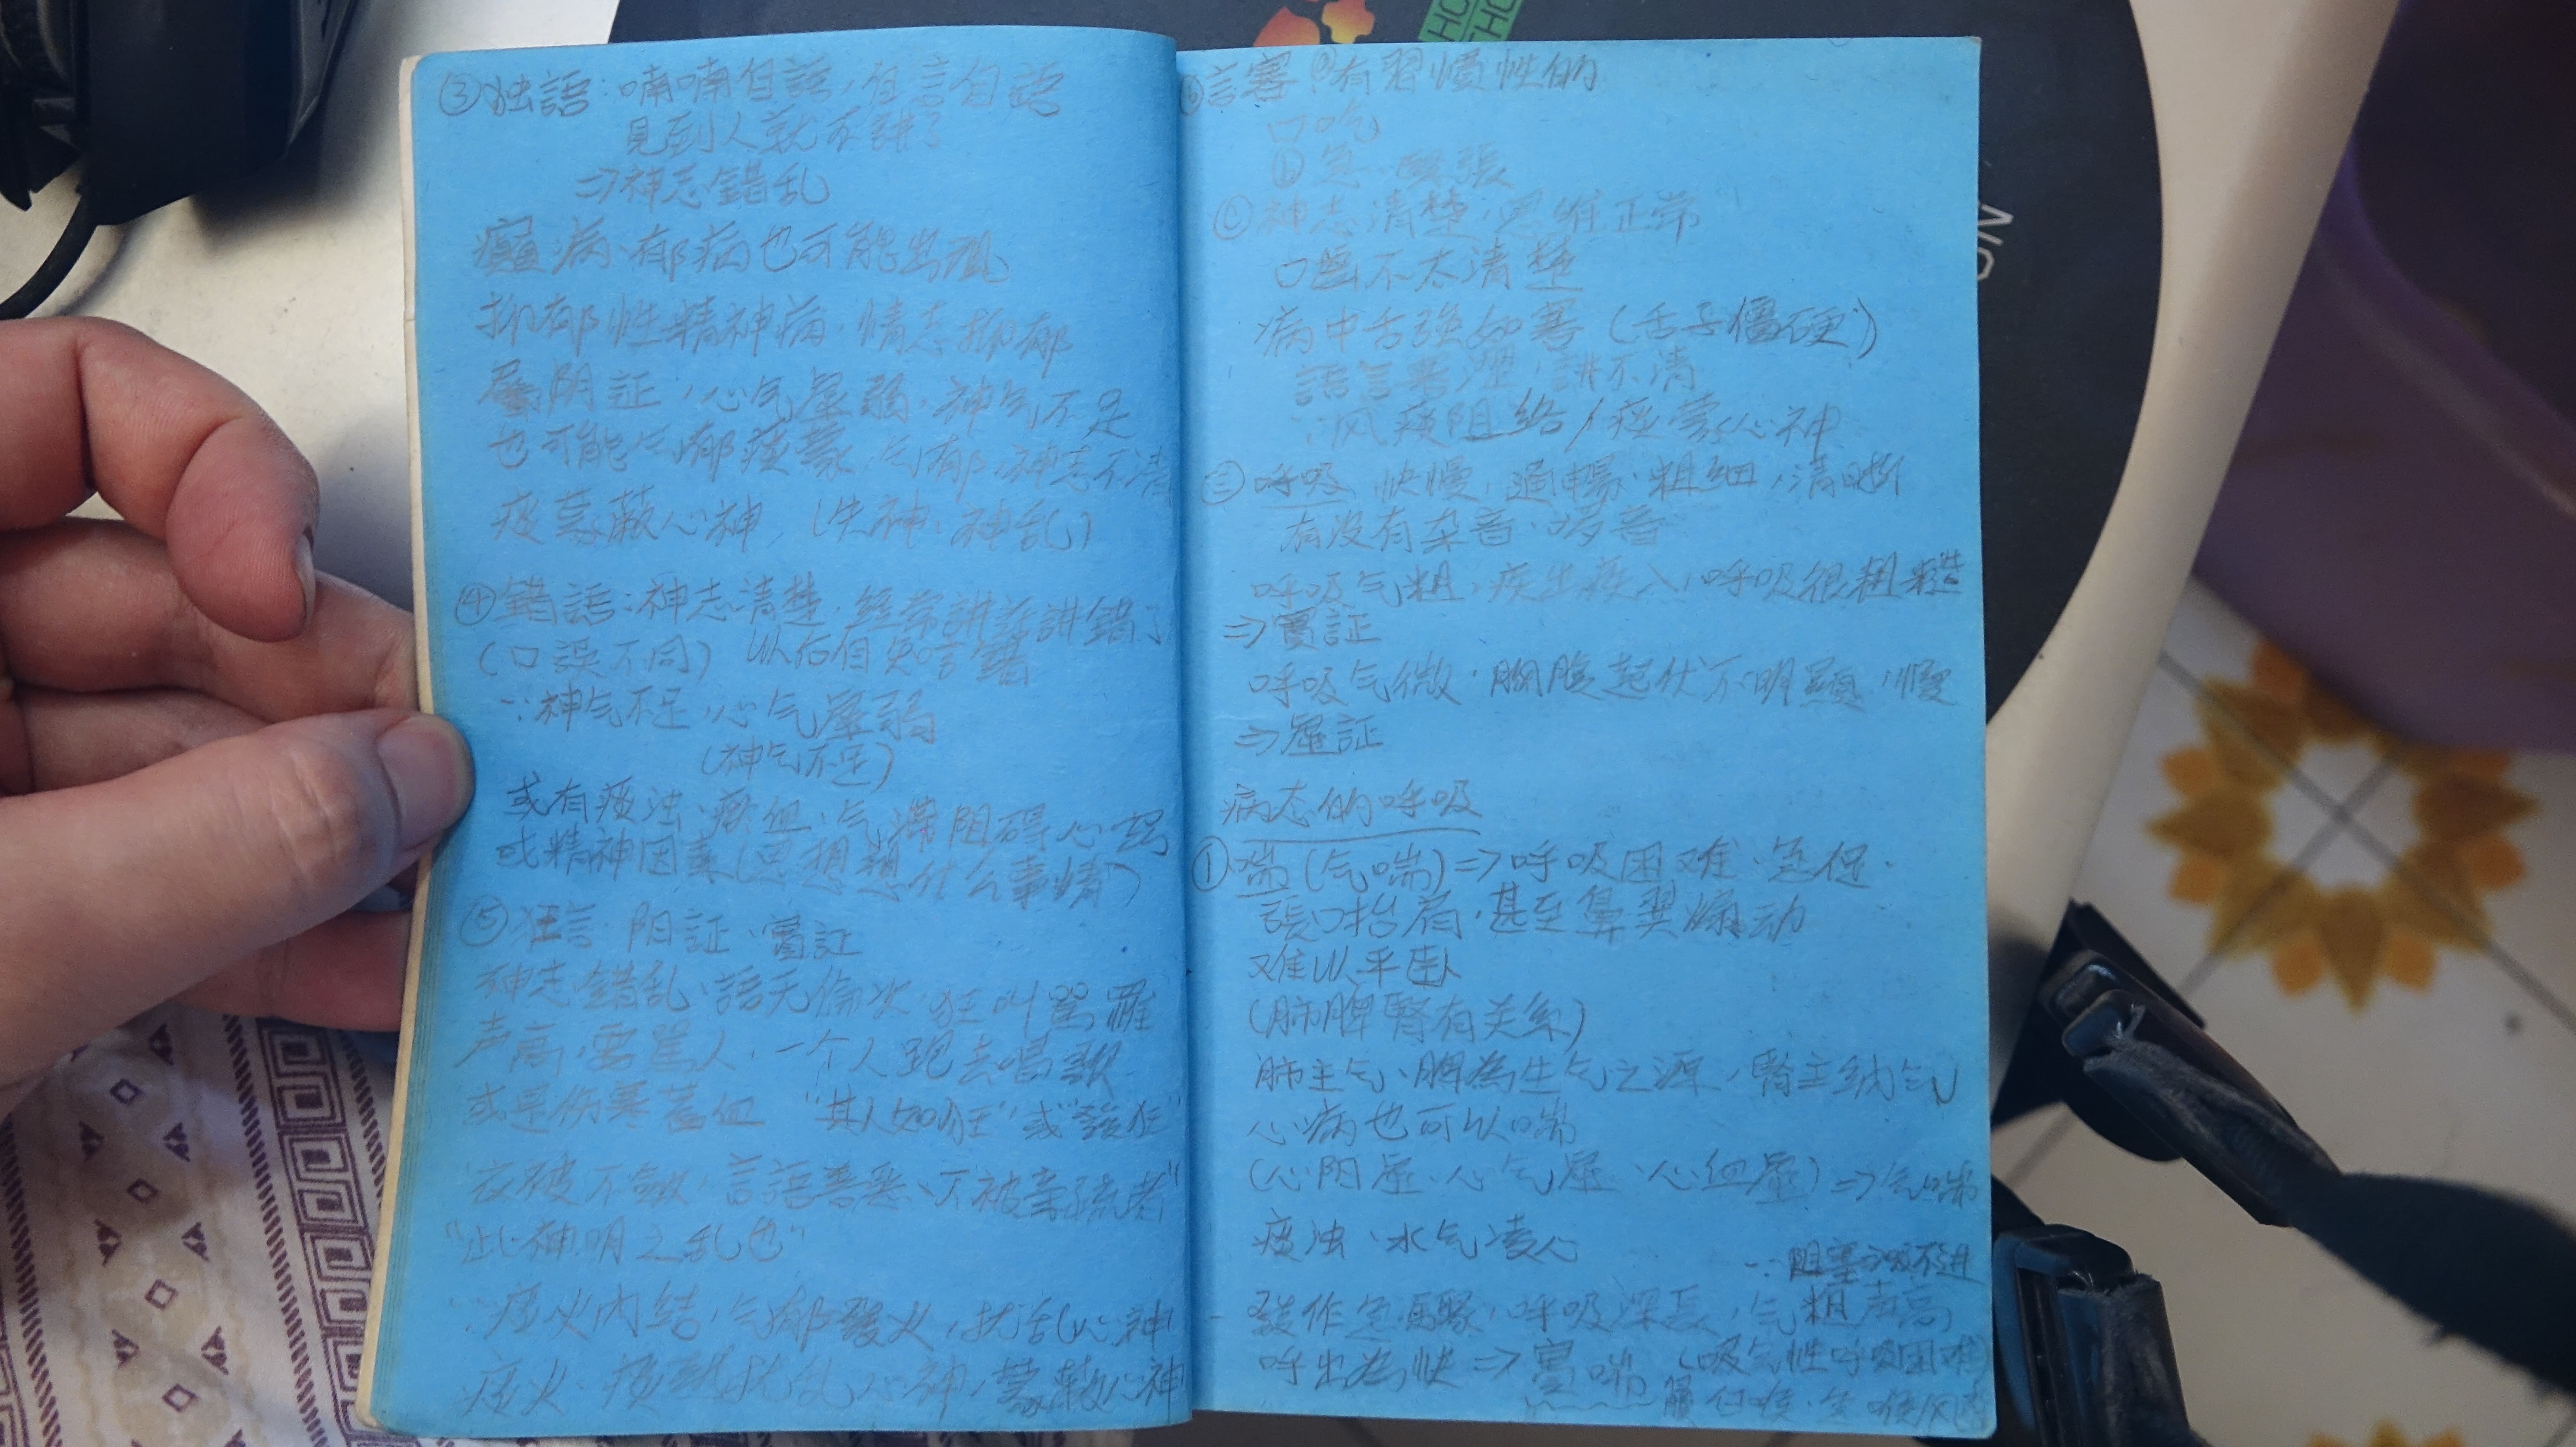 ③独語：喃喃自語，自言自語
見到人就不講了
⇒神志錯乱
癲病、郁病也可能出現
抑郁性精神病，情志抑郁
屬阴証，心气虛弱，神气不足
也可能气郁痰蒙，气郁，神志不清
痰蒙蔽心神，(失神、神乱)
④錯語：神志清楚，經常講話講錯了
(口誤不同) 以后自知言錯
∵神气不足，心气虛弱
(神气不足)
或有痰浊、瘀血、气滯阻碍心竅
或精神因素(思想想什么事情)
⑤狂言 阳証、實証
神志錯乱、語无倫次、狂叫罵詈
声高，要罵人，一个人跑去唱歌
或是伤寒蓄血 "其人如狂"或"發狂"
衣被不斂，言語善惡、不被亲疏者"
"此神明之乱也"
∵痰火内结，气郁發火，扰乱心神
痰火、痰熱扰乱心神，蒙蔽心神
⑥言謇 ⓐ有習慣性的
口吃
ⓑ急、緊張
ⓒ神志清楚，思維正常
口齒不太清楚
病中舌強如謇 (舌子僵硬)
語言謇澀，講不清
∵风痰阻络/痰蒙心神
㊂呼吸 快慢，通暢、粗細，清晰
有没有杂音、哮音
呼吸气粗，疾出疾入，呼吸很粗糙
⇒實証
呼吸气微，胸腹起伏不明顯，慢
⇒虛証
病态的呼吸
①喘 (气喘)⇒呼吸困难、急促、
張口抬肩，甚至鼻翼煽动
难以平卧
(肺脾腎有关系)
肺主气、脾為生气之源，腎主納气
心病也可以喘
(心阳虛、心气虛、心血虛)⇒气喘
痰浊、水气凌心
∵阻塞吸不进
發作急驟，呼吸深長，气粗声高
呼出為快⇒實喘 (吸气性呼吸困难)